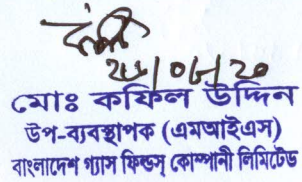 মোঃ কফিল উদ্দিন
উপ-ব্যবস্থাপক (এমআইএস)
বাংলাদেশ গ্যাস ফিল্ডস্ কোম্পানী লিমিটেড